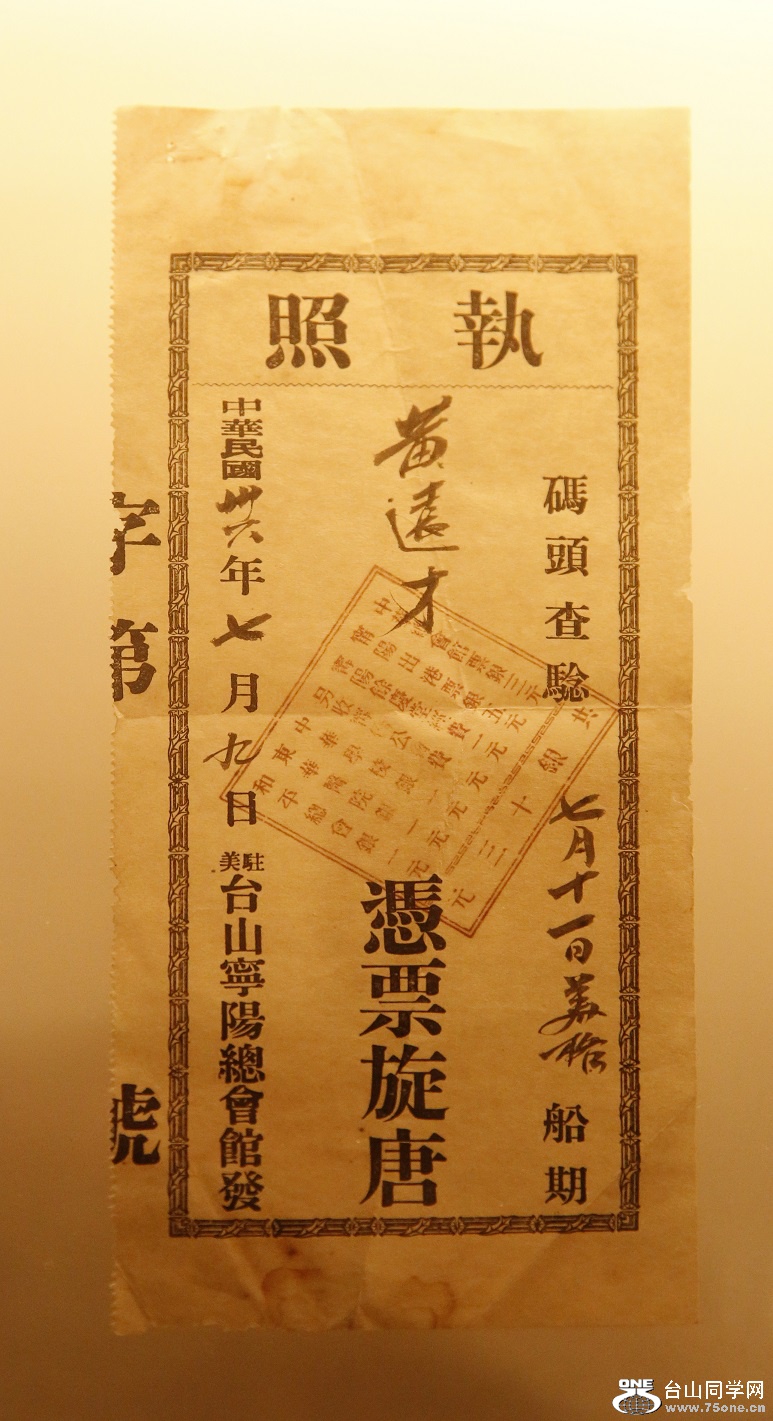 執照
碼頭查騐 七月十一日美格船期
黃遠才 憑票旋唐
中華民國卅六年七月九日 駐美台山寧陽總會館發
字第 號
共銀十三元
中華會館票銀三元
寧陽出港票銀五元
中華學校銀一元
東華醫院銀一元
和平總會銀一元
ONE 台山同学网
www.75one.cn